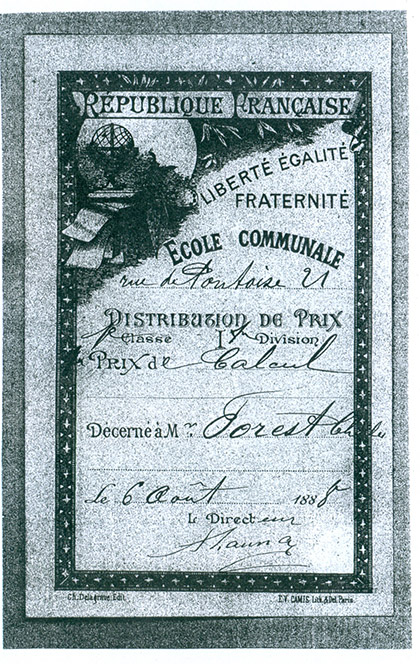 RÉPUBLIQUE FRANÇAISE
LIBERTÉ ÉGALITÉ
FRATERNITÉ
ÉCOLE COMMUNALE
rue de Pontoise 21
DISTRIBUTION DE PRIX
1re Classe 1re Division
PRIX de Calcul
Décerné à Mr Forest Charles
Le 6 Août 1888
Le Directeur
Ch. Delagrave, Edit.
F.V. CAMIS. Lith. & Del. Paris.